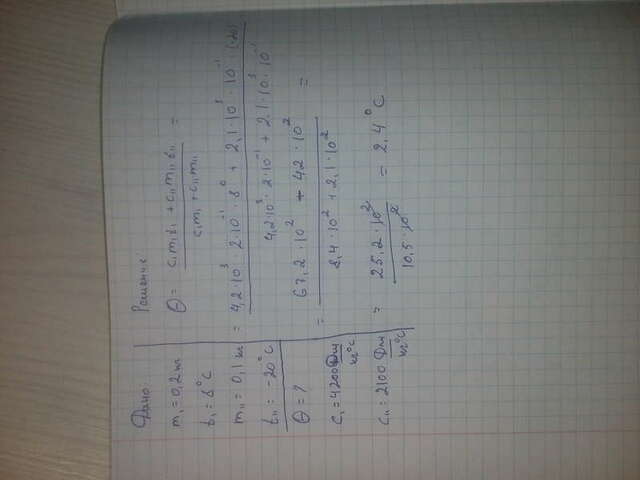 Дано:
m₁ = 0,2 кг
t₁ = 8°C
m₁₁ = 0,1 кг
t₁₁ = -20°C
Θ = ?
c₁ = 4200 Дж/кг°C
c₁₁ = 2100 Дж/кг°C
Решение:
Θ = (c₁m₁t₁ + c₁₁m₁₁t₁₁) / (c₁m₁ + c₁₁m₁₁) =
= (4,2·10³·2·10⁻¹·8⁰ + 2,1·10³·10⁻¹·(-20)) / (4,2·10³·2·10⁻¹ + 2.1·10³·10⁻¹)
= (67,2·10² + 42·10²) / (8,4·10² + 2,1·10²) =
= (25,2·10²) / (10,5·10²) = 2,4°C